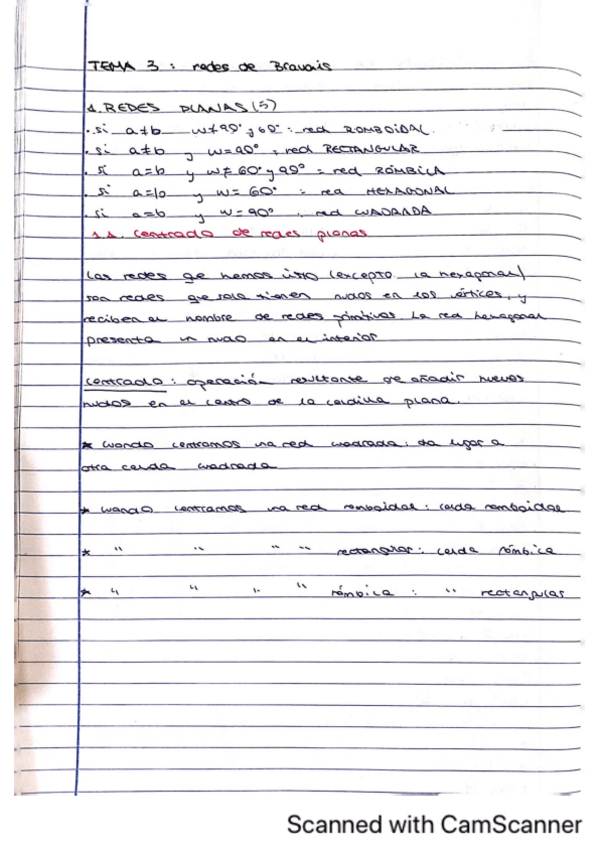 TEMA 3 : redes de Bravais
1. REDES PLANAS (5)
. si a≠b w≠90° y 60° : red ROMBOIDAL.
. si a≠b y w=90° : red RECTANGULAR
. si a=b y w≠60° y 90° = red RÓMBICA
. si a=b y w=60° = red HEXAGONAL
. si a=b y w=90° . red CUADRADA
1.1. Centrado de redes planas
Las redes que hemos visto (excepto la hexagonal)
son redes que solo tienen nudos en los vértices, y
reciben el nombre de redes primitivas La red hexagonal
presenta un nudo en el interior
Centrado : operación resultante de añadir nuevos
nudos en el centro de la celdilla plana.
* Cuando centramos una red cuadrada : da lugar a
otra celda cuadrada
* Cuando centramos una red romboidal : celda romboidal
* " " " " rectangular : celda rómbica
* " " " " rómbica : " rectangular
Scanned with CamScanner